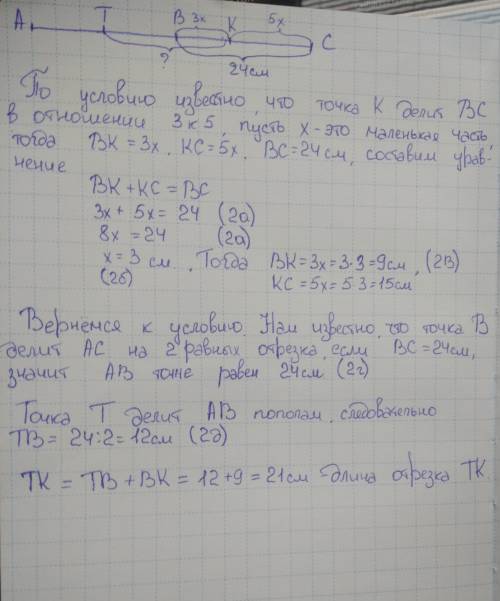 A T B 3x K 5x C
?
24см
По условию известно, что точка К делит BC
в отношении 3 к 5, пусть x - это маленькая часть,
тогда BK = 3x, KC = 5x. BC = 24 см, составим урав-
нение
BK + KC = BC
3x + 5x = 24 (2а)
8x = 24 (2а)
x = 3 см. Тогда BK = 3x = 3·3 = 9см, (2в)
(2б) KC = 5x = 5·3 = 15см
Вернёмся к условию. Нам известно, что точка B
делит AC на 2 равных отрезка, если BC = 24см,
значит AB тоже равен 24см (2г)
Точка T делит AB пополам, следовательно
TB = 24:2 = 12см (2д)
TK = TB + BK = 12 + 9 = 21см - длина отрезка TK.